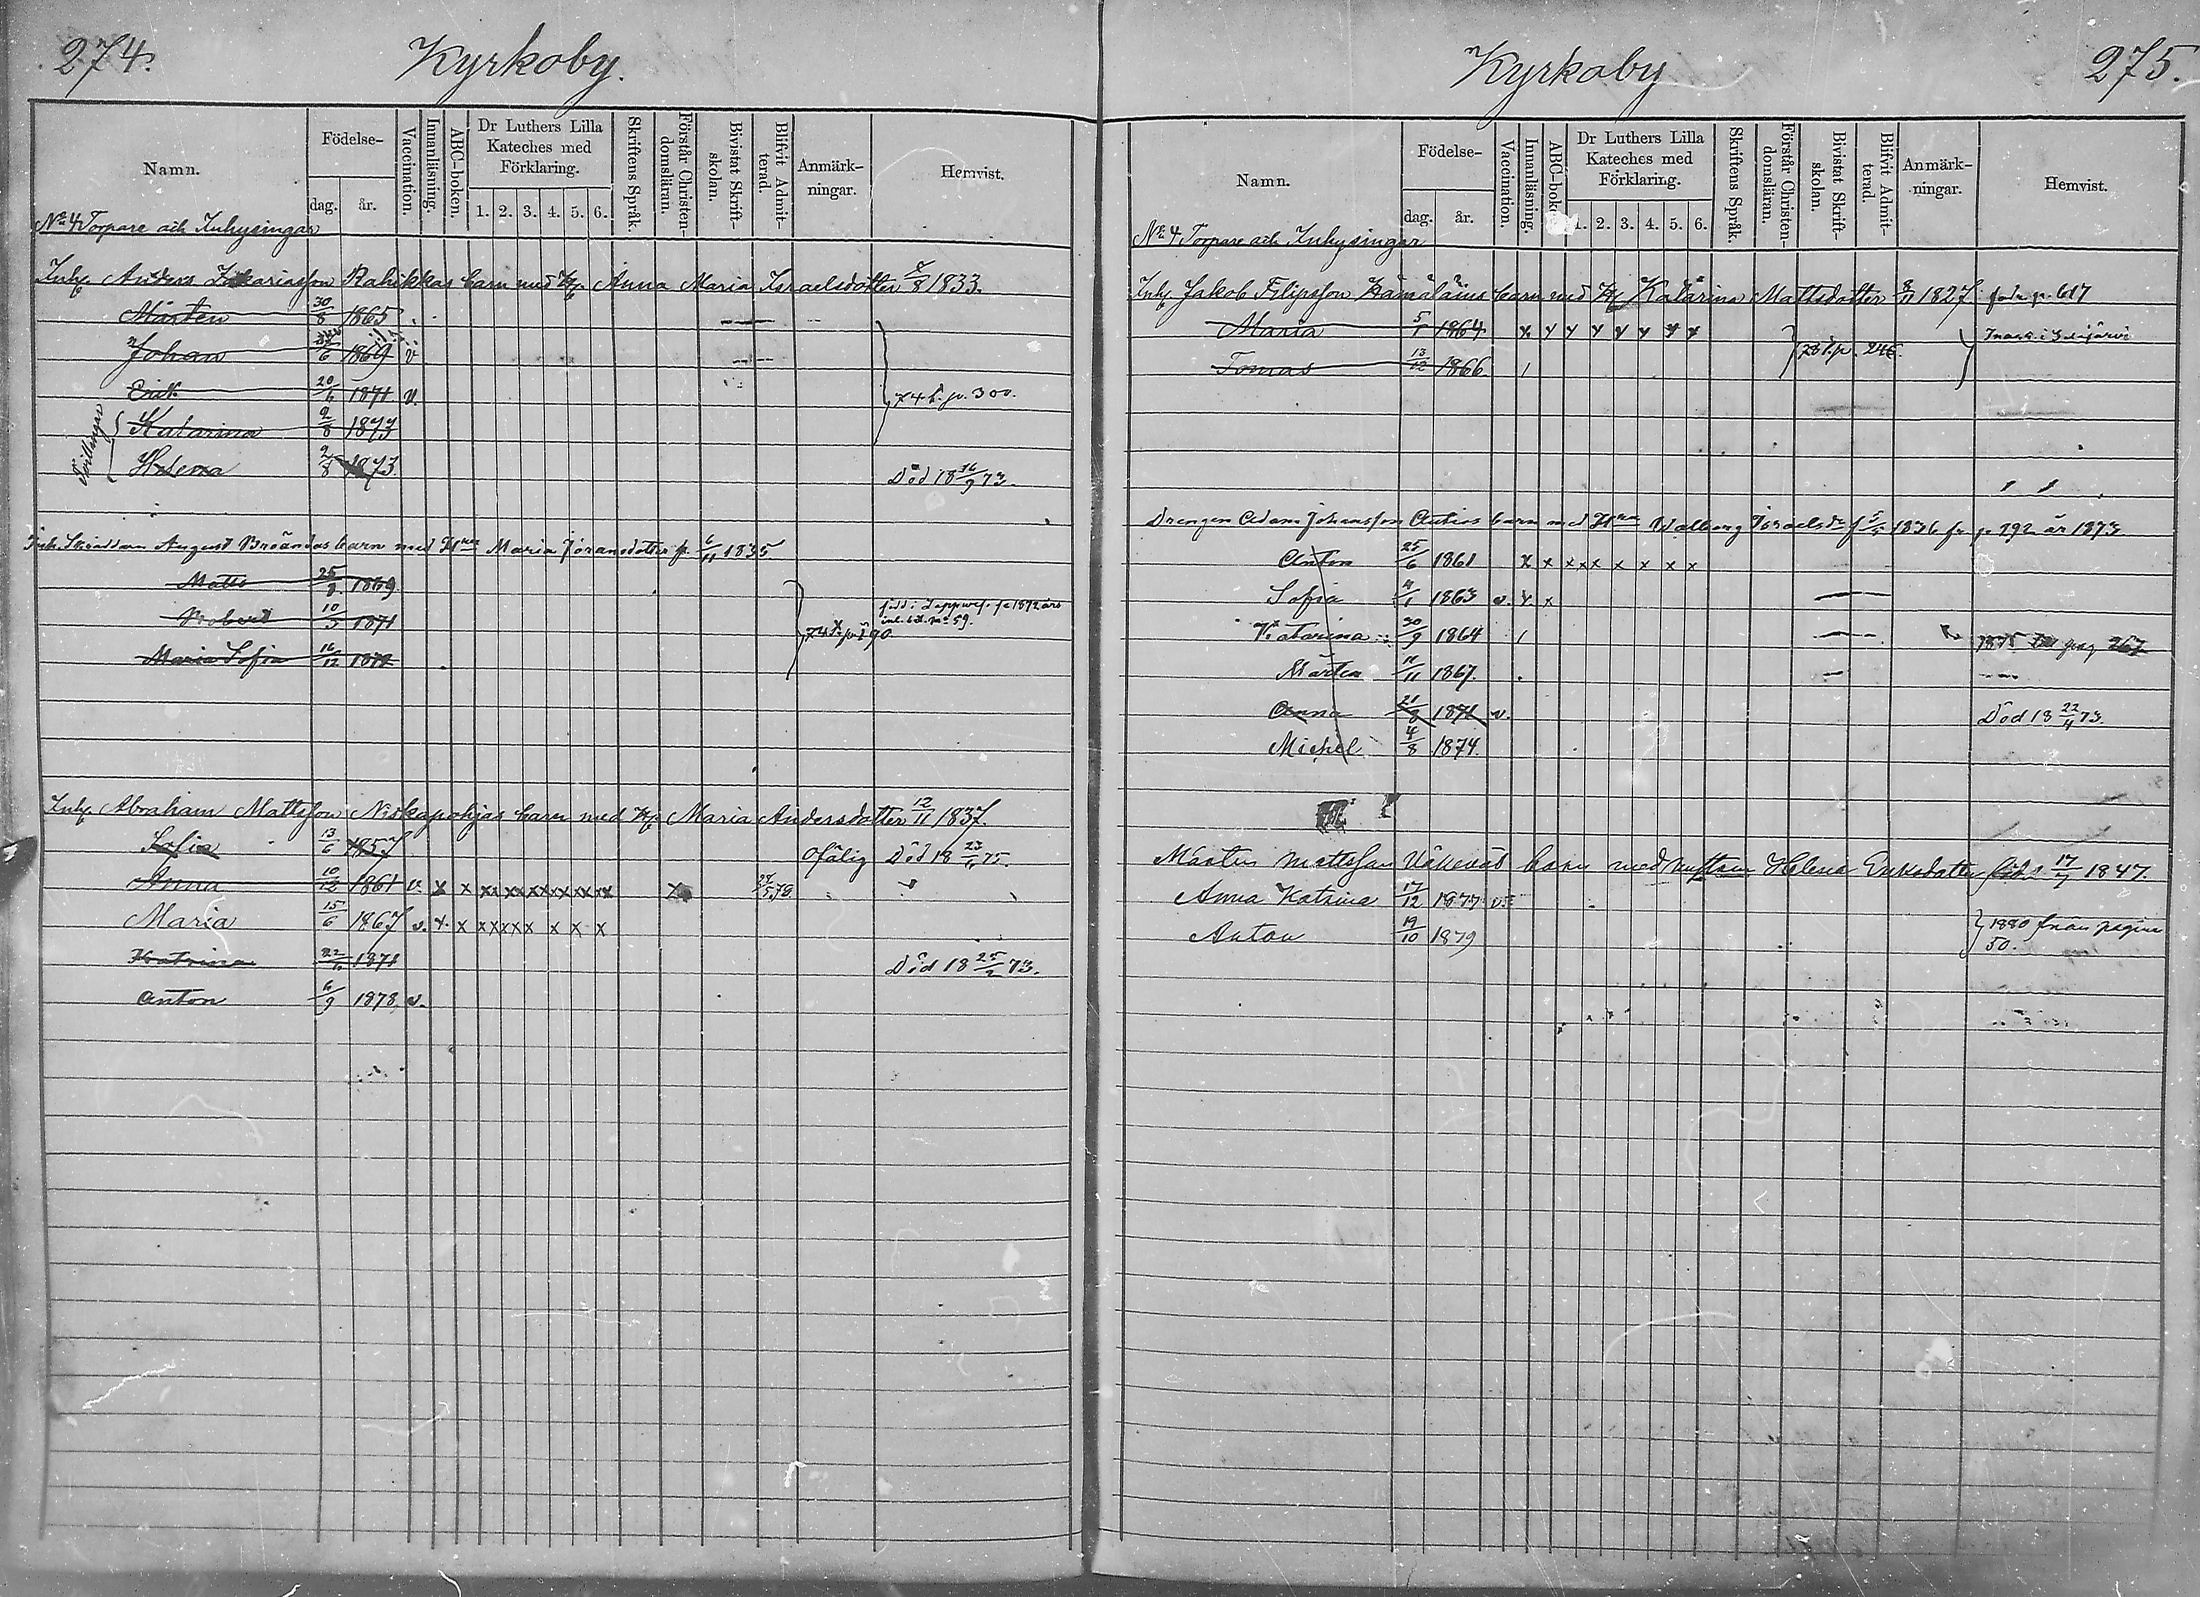 274.
Kyrkoby.
Namn.
Födelse-
dag.
år.
Vaccination.
Innanläsning.
ABC-boken.
Dr Luthers Lilla Kateches med Förklaring.
1. 2. 3. 4. 5. 6.
Skriftens Språk.
Förstår Christendomsläran.
Bivistat Skriftskolan.
Blifvit Admitterad.
Anmärkningar.
Hemvist.
No 4 Torpare och Inhysingar
Inh. Anders Zakariasson Rahikkas barn med H. Anna Maria Israelsdotter /8 1833.
Mårten 30/8 1865
Johan /6 1869 v.
Erik 20/6 1871 v.
74 l. p. 300.
Tvillingar
Katarina 2/8 1873
Helena 2/8 1873. Död 18 16/9 73.
Inh. August barn med Hu Maria Göransdotter f. 6/11 1835
Matts 25/8 1869
Robert 10/3 1871
Maria Sofia 16/12 1872
Inh. Abraham Mattsson Niskapohjas barn med H. Maria Andersdotter 12/11 1837.
Sofia 13/6 1857 Ofälig Död 18 23/6 75.
Anna 10/12 1861 v. x x xx xx xx xx xx xx x 78.
Maria 15/6 1867 v. x. x xxxxx x x x
Katrina 22/6 1871 Död 18 25/2 73.
Anton 6/9 1878. v.
Kyrkoby
275.
Namn.
Födelse-
dag.
år.
Vaccination.
Innanläsning.
ABC-boken.
Dr Luthers Lilla Kateches med Förklaring.
1. 2. 3. 4. 5. 6.
Skriftens Språk.
Förstår Christendomsläran.
Bivistat Skriftskolan.
Blifvit Admitterad.
Anmärkningar.
Hemvist.
No 4 Torpare och Inhysingar
Inh. Jakob Filipsson Kämäläins barn med H Katarina Mattsdotter 8/11 1827. p. 617
Maria 5/1 1864 x. x x x x x x x
Tomas 13/12 1866
Drengen Adam Johansson Anttos barn med Hu Walborg Israelsdr f. 1836 fr. p. 192 år 1873
Anton 25/6 1861 x x xxx x x x x
Sofia 4/1 1863 v. x. x
Katarina 30/9 1864 1875 pag 267
Mårten 11/11 1867.
Anna 21/8 1871 v. Död 18 22/4 73.
Michel 4/8 1874.
Mårten Mattsson Väkeväs barn med hustrun Helena Eriksdotter född 17/7 1847.
Anna Katrina 17/12 1877 v.
Anton 19/10 1879
1880 från pagina 50.